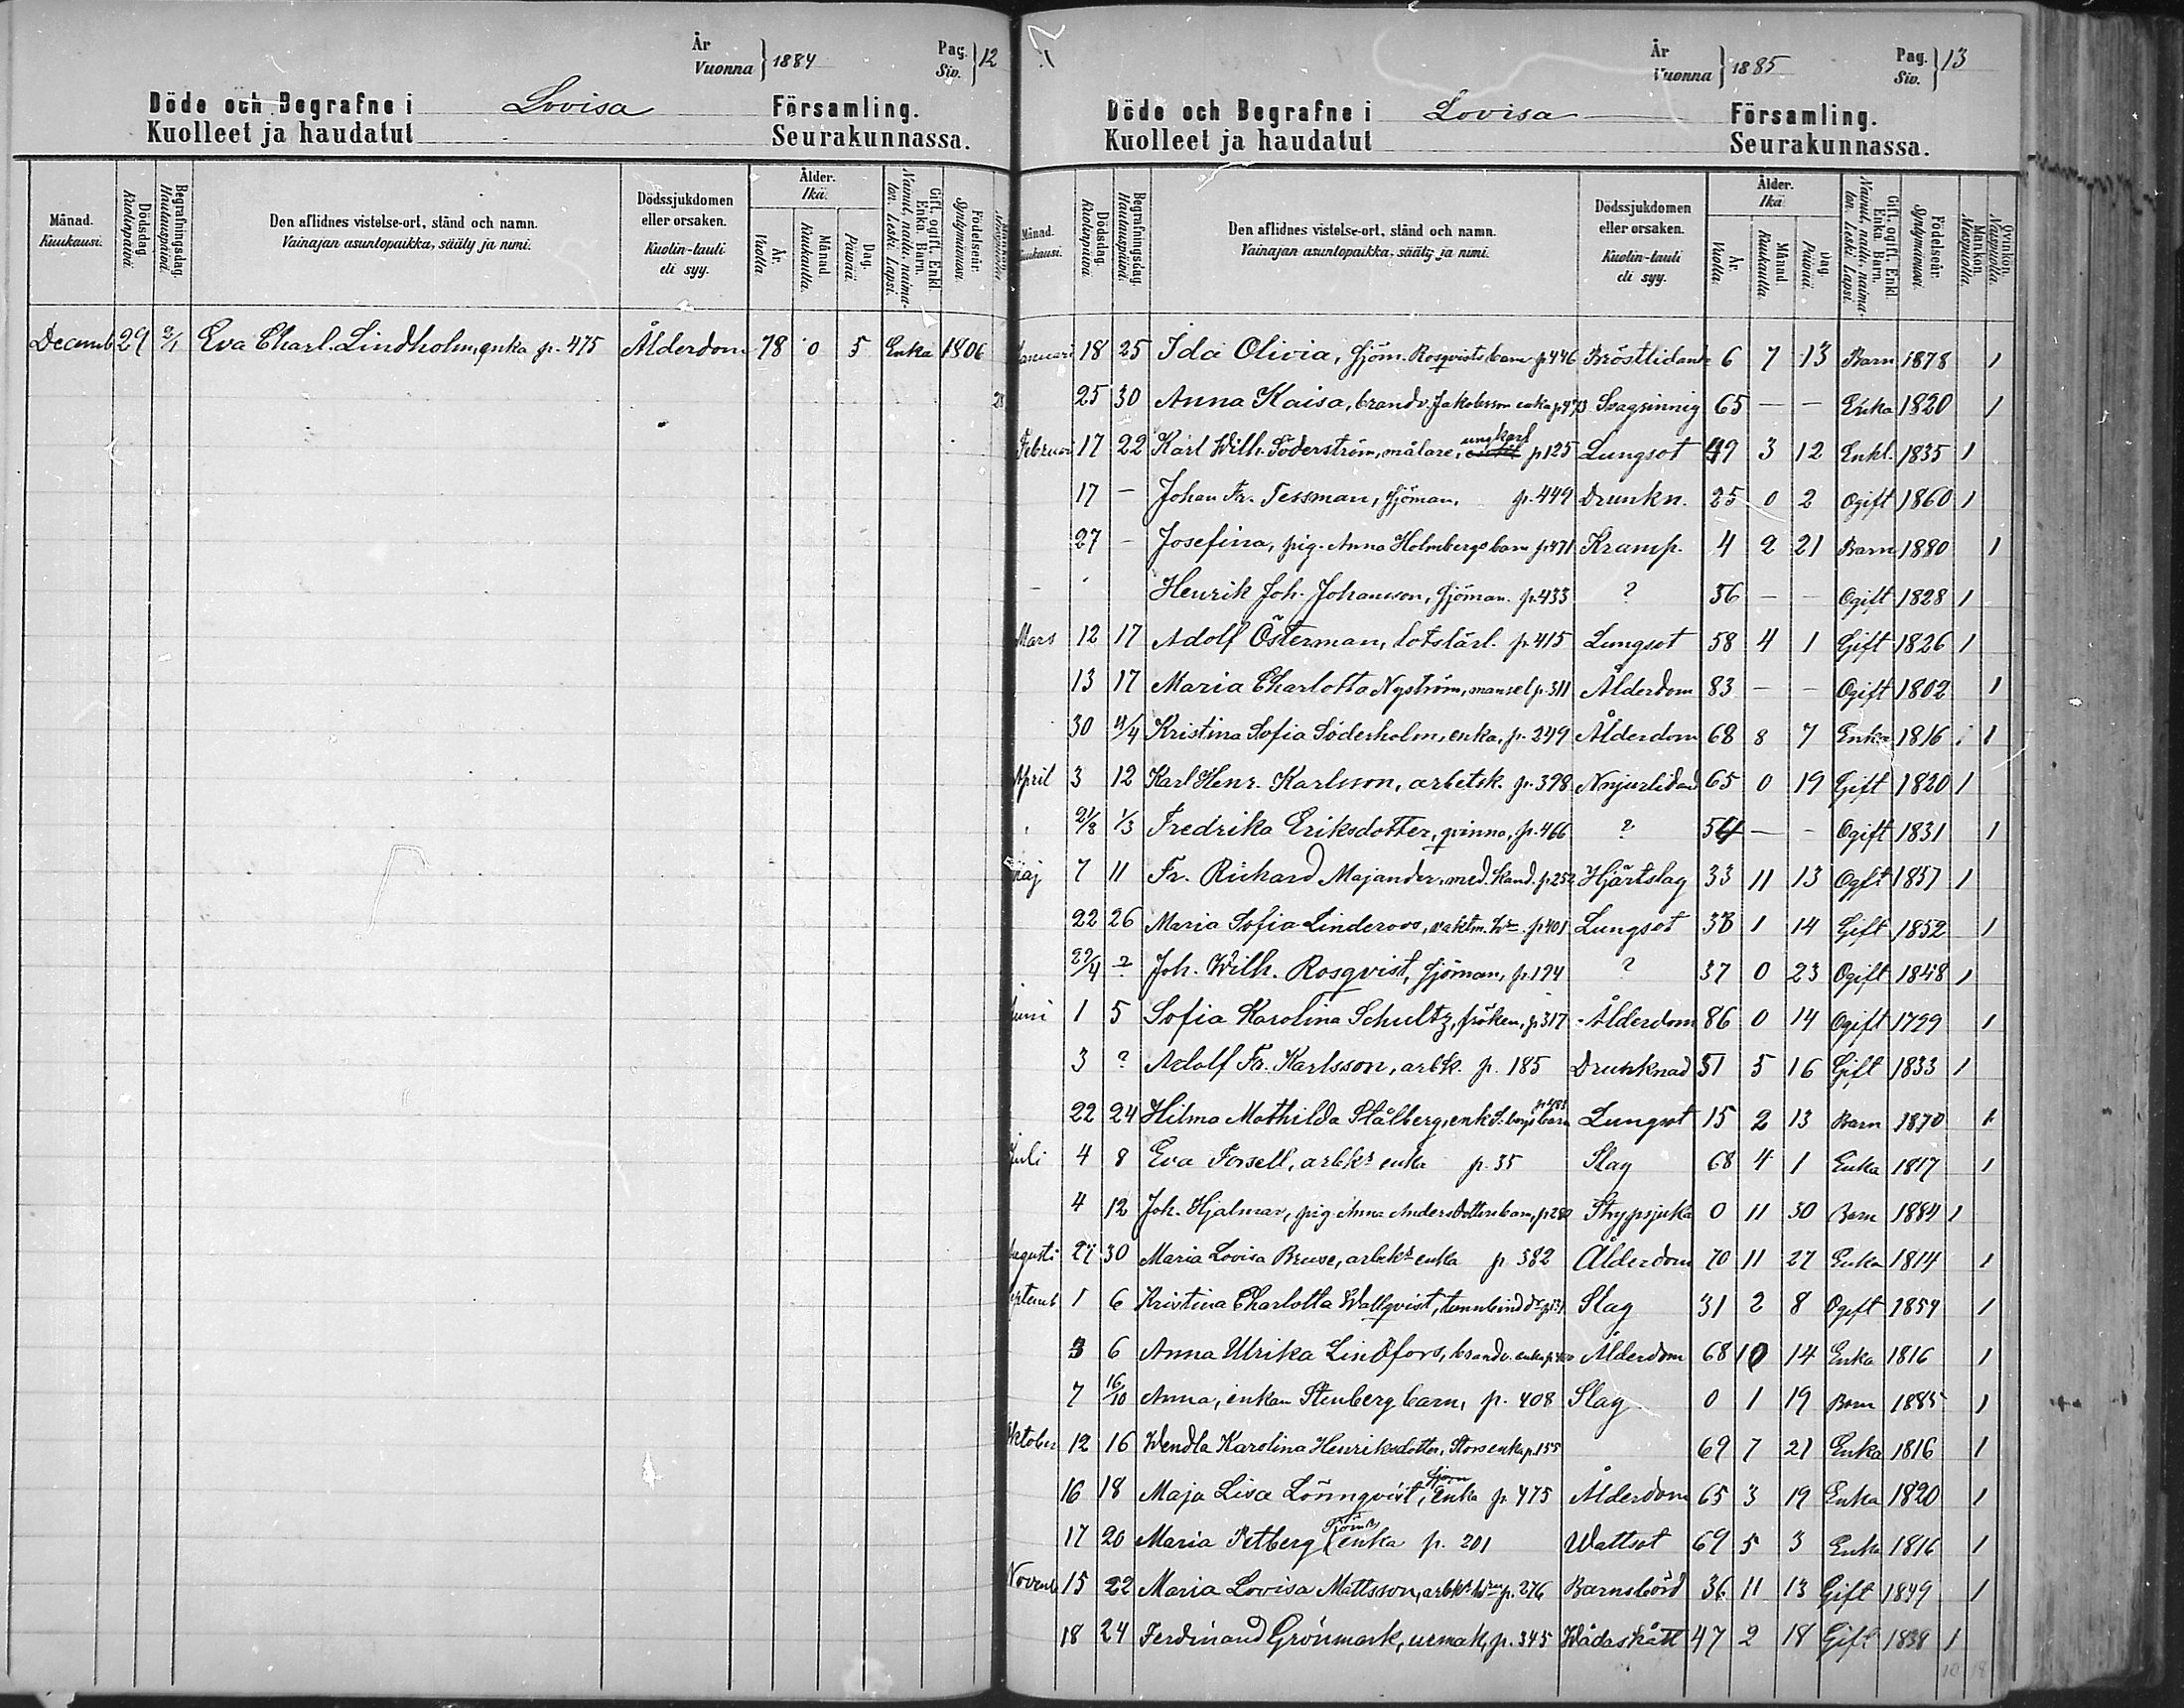 År
Vuonna } 1884 Pag.
Siv. } 12
Döde och Begrafne i Lovisa Församling.
Kuolleet ja haudatut Seurakunnassa.
Månad. Kuukausi. Dödsdag. Kuolinpäivä. Begrafningsdag. Hautauspäivä. Den aflidnes vistelse-ort, stånd och namn. Vainajan asuntopaikka, sääty ja nimi. Dödssjukdomen eller orsaken. Kuolin-tauti eli syy. Ålder. Ikä. År. Vuotta. Månad. Kuukautta. Dag. Päivää. Gift, ogift. Enkl. Enka. Barn. Nainut, naitu, naimaton. Leski. Lapsi. Födelseår. Syntymävuosi.
Decemb 29 2/1 Eva Charl. Lindholm, enka p. 475 Ålderdom 78 0 5 Enka 1806
År
Vuonna } 1885 Pag.
Siv. } 13
Döde och Begrafne i Lovisa Församling.
Kuolleet ja haudatut Seurakunnassa.
Månad. Kuukausi. Dödsdag. Kuolinpäivä. Begrafningsdag. Hautauspäivä. Den aflidnes vistelse-ort, stånd och namn. Vainajan asuntopaikka, sääty ja nimi. Dödssjukdomen eller orsaken. Kuolin-tauti eli syy. Ålder. Ikä. År. Vuotta. Månad. Kuukautta. Dag. Päivää. Gift, ogift. Enkl. Enka. Barn. Nainut, naitu, naimaton. Leski. Lapsi. Födelseår. Syntymävuosi. Mankön. Miespuolta. Qvinkön. Naispuolta.
Januari 18 25 Ida Olivia, sjöm. Rosqvists barn p446 Bröstlidande 6 7 13 Barn 1878 1
25 30 Anna Kaisa, brandv. Jakobsson enka p473 Svagsinnig 65 — — Enka 1820 1
Februari 17 22 Karl Wilh. Söderström, målare, ungkarl p125 Lungsot 49 3 12 Enkl. 1835 1
17 — Johan Fr. Tessman, sjöman, p. 449 Drunkn. 25 0 2 Ogift 1860 1
27 — Josefina, pig. Anna Holmbergs barn p471 Kramp. 4 2 21 Barn 1880 1
Henrik Joh. Johansson, sjöman. p.433 ? 56 — — Ogift 1828 1
Mars 12 17 Adolf Österman, lotslärl. p.415 Lungsot 58 4 1 Gift 1826 1
13 17 Maria Charlotta Nyström, mamsel p.311 Ålderdom 83 — — Ogift 1802 1
30 4/4 Kristina Sofia Söderholm, enka, p. 249 Ålderdom 68 8 7 Enka 1816 1
April 3 12 Karl Henr. Karlsson, arbetsk. p. 398 Nnjurlidand 65 0 19 Gift 1820 1
1/3 Fredrika Eriksdotter, qvinna, p. 466 ? 54 — — Ogift 1831 1
Maj 7 11 Fr. Richard Majander, med. kand. p252 Hjärtslag 33 11 13 Ogft 1857 1
22 26 Maria Sofia Linderoos, vaktm. p401 Lungsot 33 1 14 Gift 1852 1
22/4 ? Joh. Wilh. Rosqvist, sjöman, p.194 ? 37 0 23 Ogift 1848 1
Juni 1 5 Sofia Karolina Schultz, fröken, p317 Ålderdom 86 0 14 Ogift 1799 1
3 ? Adolf Fr. Karlsson, arbk. p. 185 Drunknad 51 5 16 Gift 1833 1
22 24 Hilma Mathilda Stålberg, enk S.bergs barn Lungsot 15 2 13 Barn 1870 1
Juli 4 8 Eva Forsell, arbks enka p. 35 Slag 68 4 1 Enka 1817 1
4 12 Joh. Hjalmar, pig Anna Andersdotters barn, Strypsjuka 0 11 30 Barn 1884 1
Augusti 27 30 Maria Lovisa Bruse, arbks enka p 382 Ålderdom 70 11 27 Enka 1814 1
Septemb 1 6 Kristina Charlotta Wallqvist, tunnbind Slag 31 2 8 Ogift 1854 1
3 6 Anna Ulrika Lindfors, brandv. enka Ålderdom 68 10 14 Enka 1816 1
7 16/10 Anna, enkan Stenberg barn, p. 408 Slag 0 1 19 Barn 1885 1
Oktober 12 16 Wendla Karolina Henriksdotter, Stors enka p.155 69 7 21 Enka 1816 1
16 18 Maja Lisa Lönnqvist, sjöm enka p. 475 Ålderdom 65 3 19 Enka 1820 1
17 20 Maria Petberg sjöms enka p. 201 Wattsot 69 5 3 Enka 1816 1
Novemb 15 22 Maria Lovisa Mattsson, arbks p. 276 Barnsbörd 36 11 13 Gift 1849 1
18 24 Ferdinand Grönmark, urmak, p. 345 Wådaskått 47 2 18 Gift 1838 1
10 18